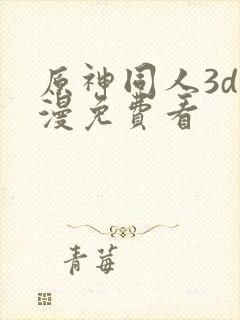 原神同人3d
漫免費看
青莓